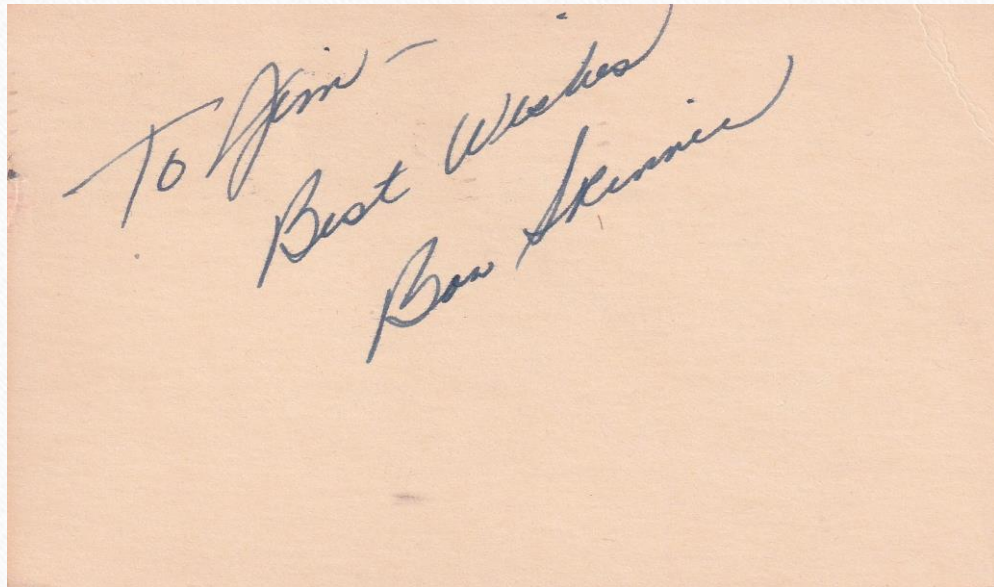 To Jim -
Best Wishes
Bob Skinner